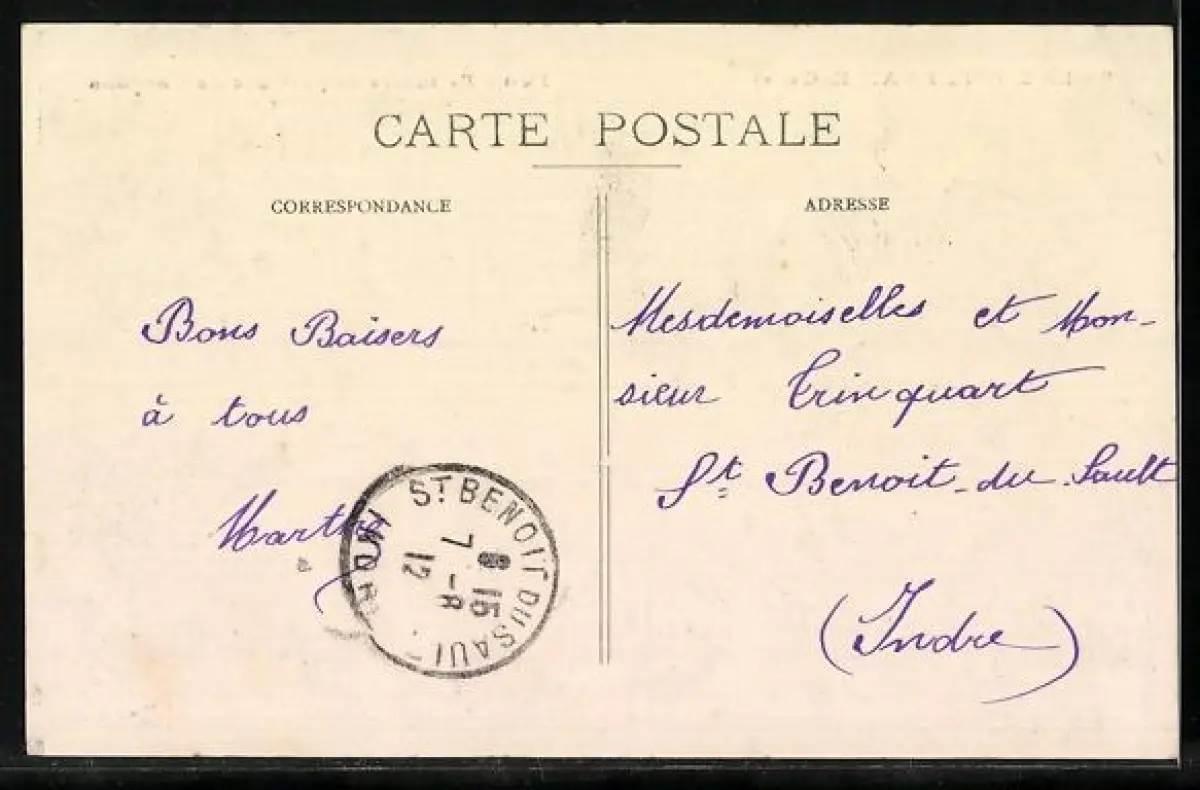 CARTE POSTALE
CORRESPONDANCE
ADRESSE
Bons Baisers
à tous
Marthe
Mesdemoiselles et Mon-
sieur Trinquart
St Benoit-du-Sault
(Indre)
ST BENOIT DU SAULT
8 15
7 -8
12